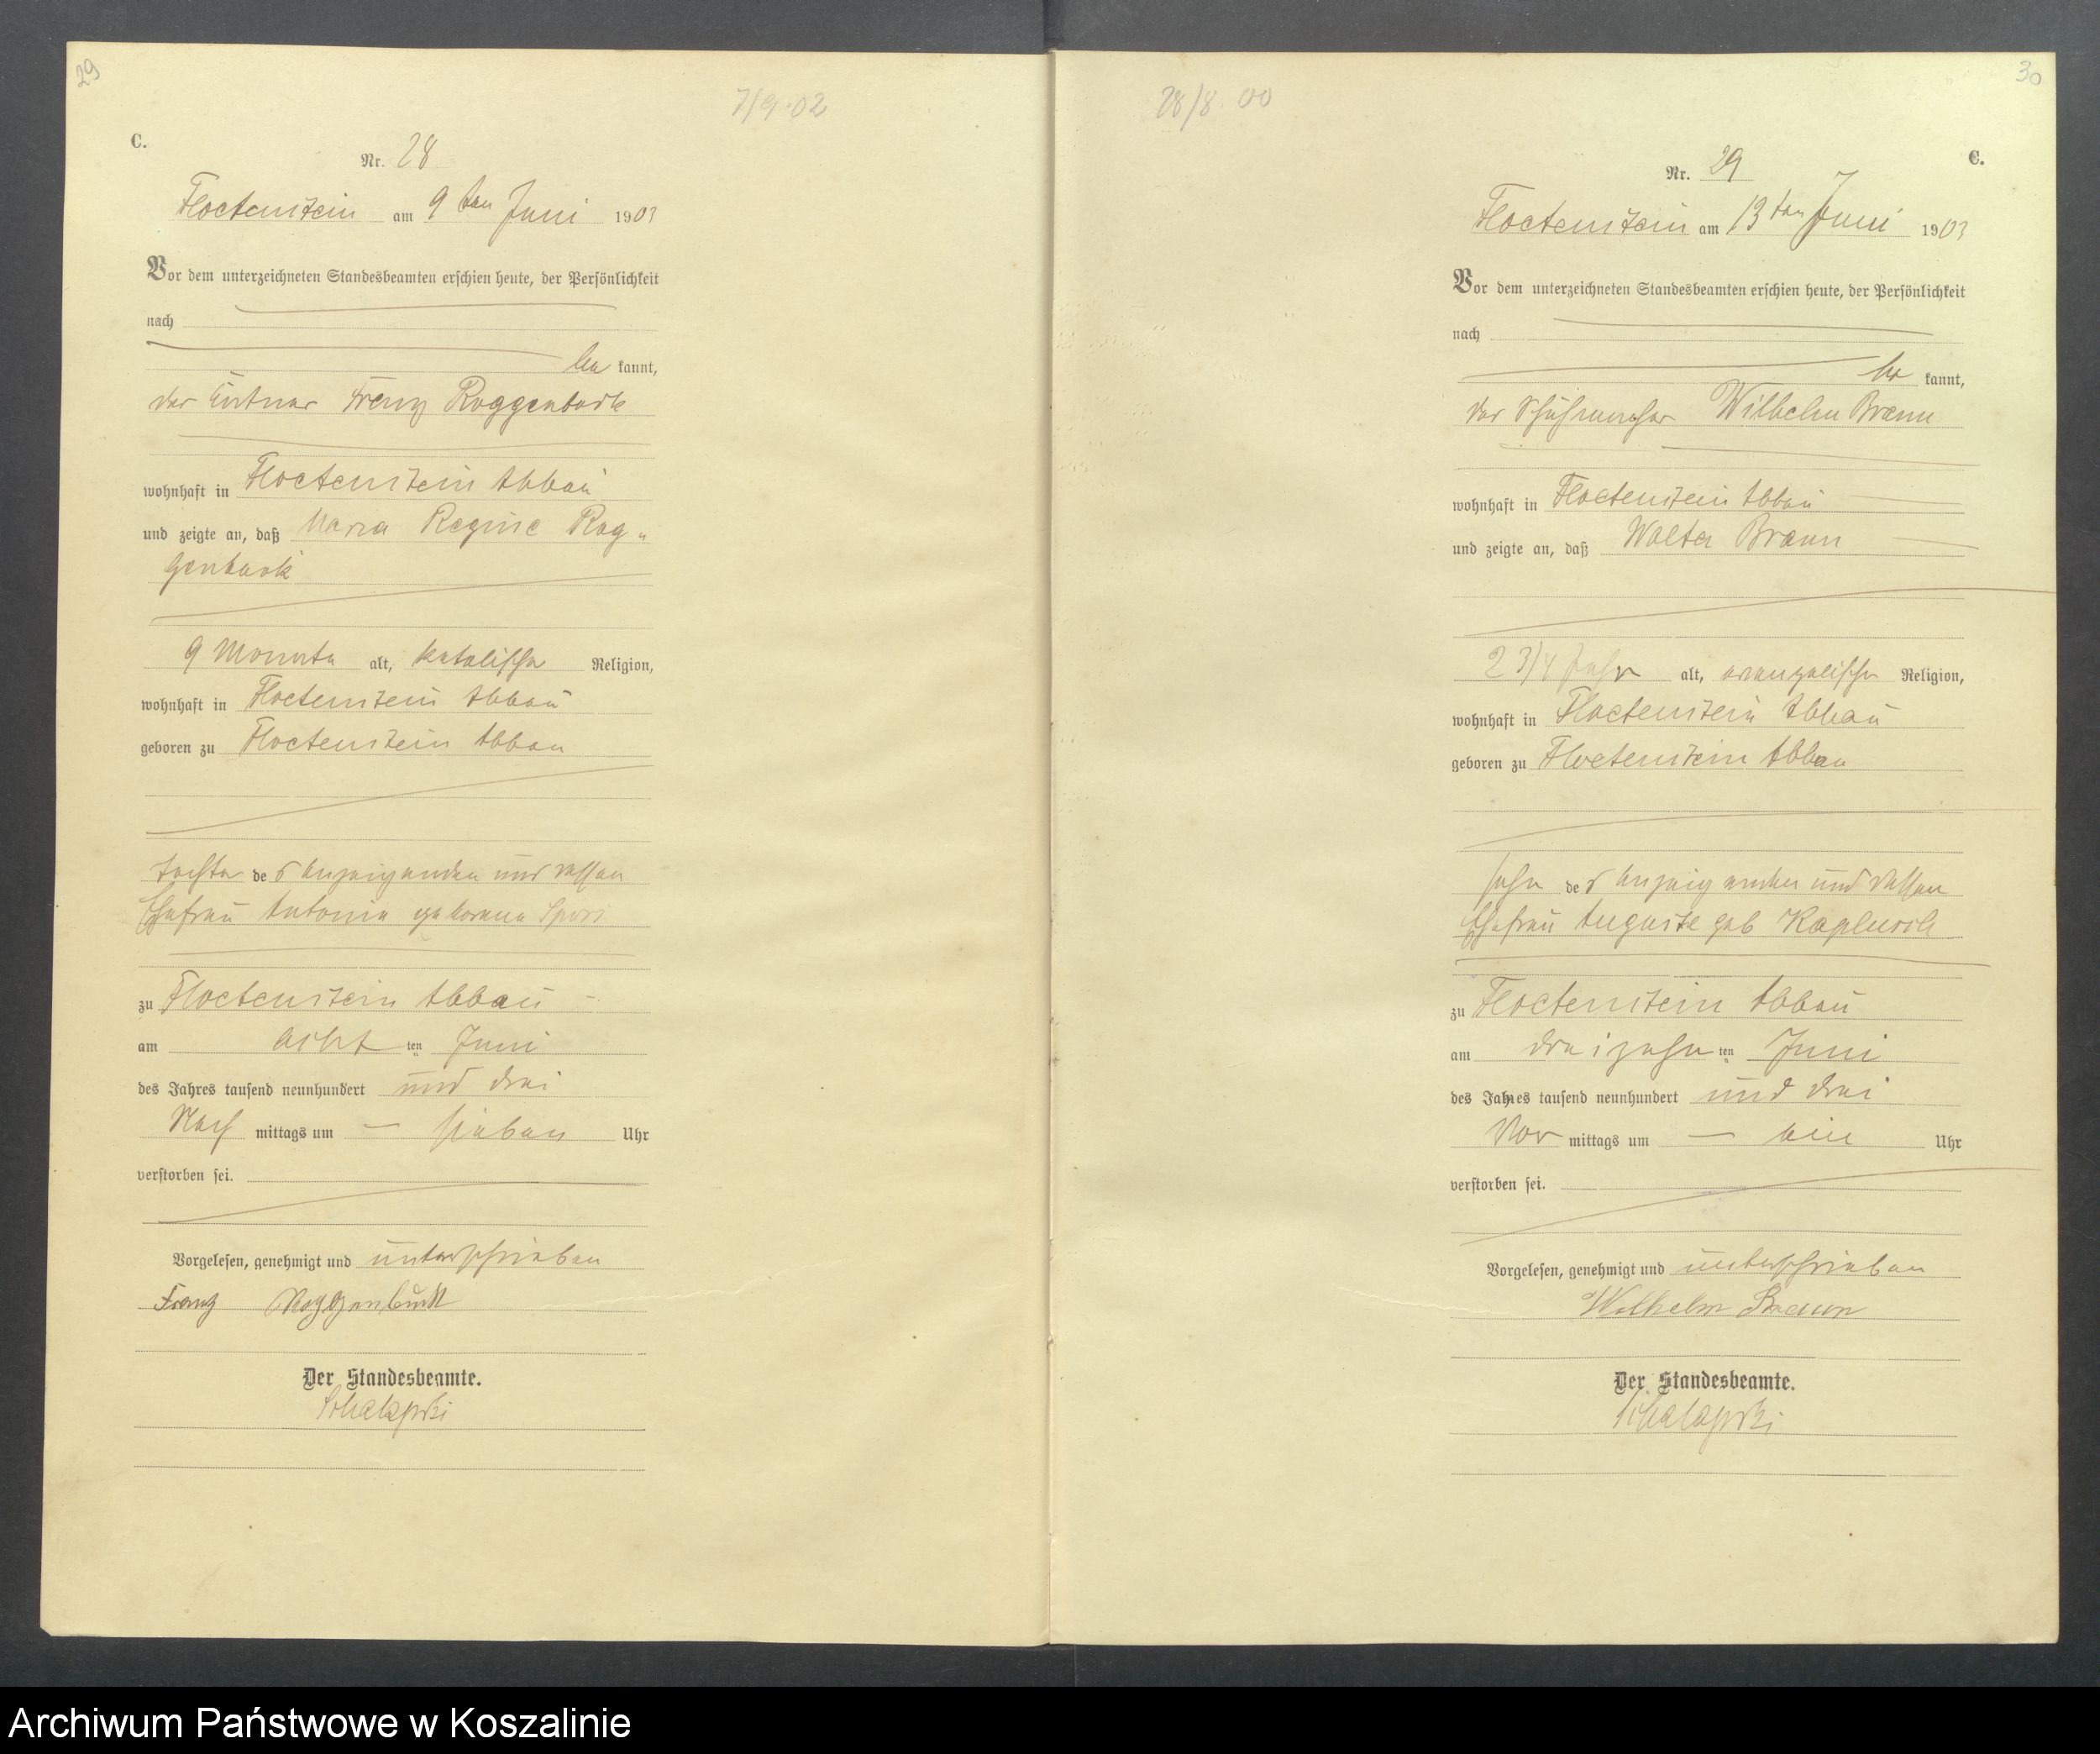 29
7/9.02
C.
Nr. 28
Floetenstein am 9ten Juni 1903
Vor dem unterzeichneten Standesbeamten erschien heute, der Persönlichkeit
nach
be kannt,
der Franz Roggenbuck
wohnhaft in Floetenstein Abbau
und zeigte an, daß Maria Regine Rog„
genbuck
9 Monate alt, katolischer Religion,
wohnhaft in Floetenstein Abbau
geboren zu Floetenstein Abbau
Tochter des Anzeigenden und dessen
Ehefrau Antonie geborene
zu Floetenstein Abbau
am acht ten Juni
des Jahres tausend neunhundert und drei
Nach mittags um sieben Uhr
verstorben sei.
Vorgelesen, genehmigt und unterschrieben
Franz Roggenbuck
Der Standesbeamte.
30
28/8.00
C.
Nr. 29
Floetenstein am 13ten Juni 1903
Vor dem unterzeichneten Standesbeamten erschien heute, der Persönlichkeit
nach
be kannt,
der Schuhmacher Wilhelm Braun
wohnhaft in Floetenstein Abbau
und zeigte an, daß Walter Braun
2 3/4 Jahr alt, evangelischer Religion,
wohnhaft in Floetenstein Abbau
geboren zu Floetenstein Abbau
Sohn des Anzeigenden und dessen
Ehefrau Auguste geb
zu Floetenstein Abbau
am dreizehn ten Juni
des Jahres tausend neunhundert und drei
Vor mittags um ein Uhr
verstorben sei.
Vorgelesen, genehmigt und unterschrieben
Wilhelm Braun
Der Standesbeamte.
Archiwum Państwowe w Koszalinie